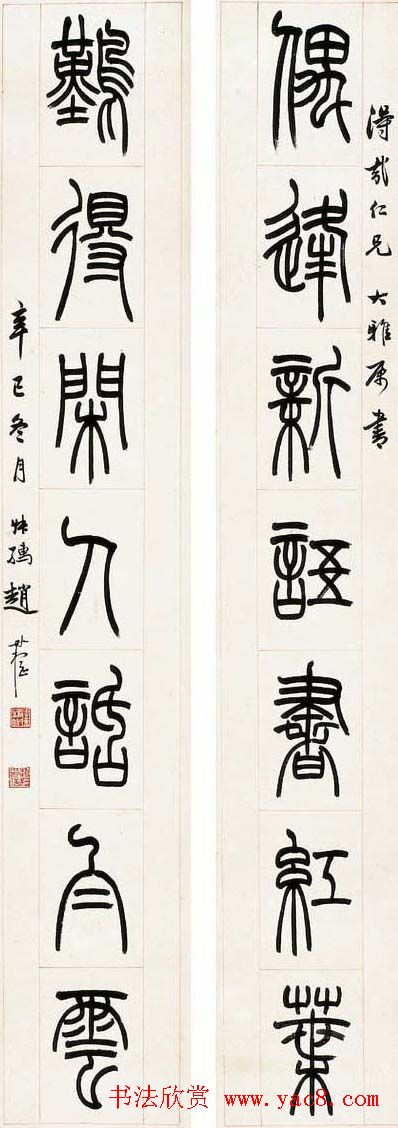 淂哉仁兄 大雅属書
偶逢新語書紅葉
難得閑人話白雲
辛巳冬月 叔孺趙時棡
书法欣赏 www.yac8.com